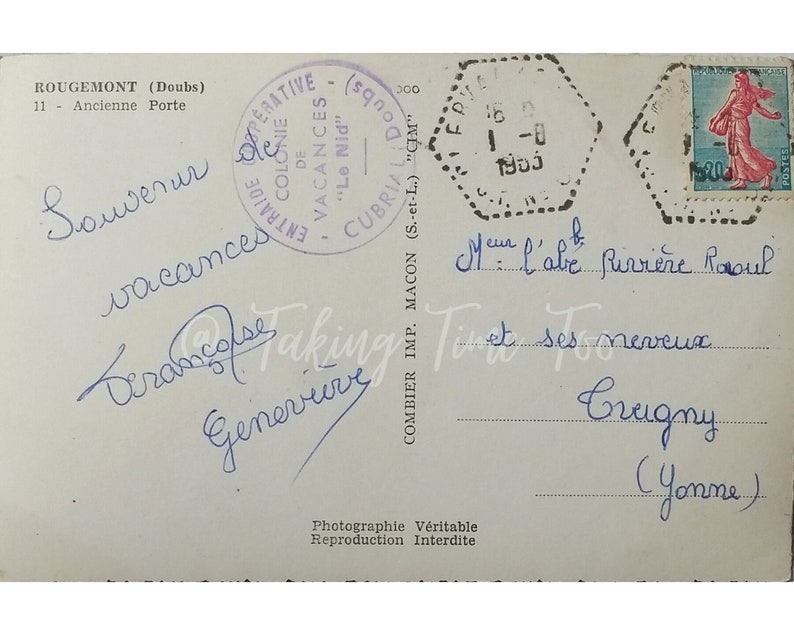 ROUGEMONT (Doubs)
11 - Ancienne Porte
ENTRAIDE COOPÉRATIVE - CUBRIAL (Doubs)
COLONIE
DE
- VACANCES -
"Le Nid"
Souvenir de
vacances
Françoise
Geneviève
COMBIER IMP. MACON (S.-et-L.) "CIM"
1 -8
RÉPUBLIQUE FRANÇAISE
0,20
POSTES
Meur l'abé Rivière Raoul
et ses neveux
(Yonne)
Photographie Véritable
Reproduction Interdite
@ Taking Time Too